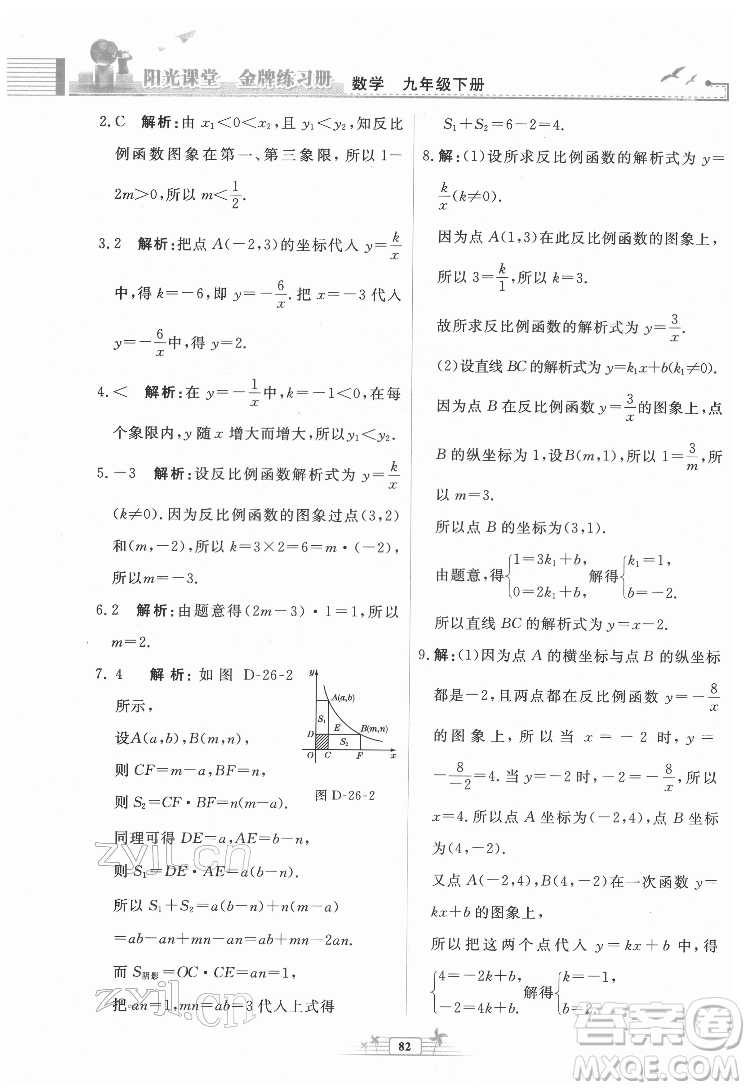 阳光课堂 金牌练习册 数学 九年级下册
2.C 解析:由 x₁<0<x₂,且 y₁<y₂,知反比
例函数图象在第一、第三象限,所以 1-
2m>0,所以 m<1/2.
3.2 解析:把点 A(-2,3)的坐标代入 y=k/x
中,得 k=-6,即 y=-6/x.把 x=-3 代入
y=-6/x中,得 y=2.
4.< 解析:在 y=-1/x中,k=-1<0,在每
个象限内,y 随 x 增大而增大,所以y₁<y₂.
5.-3 解析:设反比例函数解析式为 y=k/x
(k≠0).因为反比例函数的图象过点(3,2)
和(m,-2),所以 k=3×2=6=m·(-2),
所以m=-3.
6.2 解析:由题意得(2m-3)·1=1,所以
m=2.
7.4 解析:如图 D-26-2
所示,
设A(a,b),B(m,n),
则 CF=m-a,BF=n,
则 S₂=CF·BF=n(m-a).
同理可得 DE=a,AE=b-n,
则 S₁=DE·AE=a(b-n).
所以 S₁+S₂=a(b-n)+n(m-a)
=ab-an+mn-an=ab+mn-2an.
而 S阴影=OC·CE=an=1,
把 an=1,mn=ab=3代入上式得
y
A(a,b)
S₁
D E B(m,n)
S₂
O C F x
图 D-26-2
S₁+S₂=6-2=4.
8.解:(1)设所求反比例函数的解析式为 y=
k/x(k≠0).
因为点 A(1,3)在此反比例函数的图象上,
所以 3=k/1,所以 k=3.
故所求反比例函数的解析式为 y=3/x.
(2)设直线 BC的解析式为 y=k₁x+b(k₁≠0).
因为点 B 在反比例函数 y=3/x的图象上,点
B 的纵坐标为 1,设 B(m,1),所以 1=3/m,所
以 m=3.
所以点 B 的坐标为(3,1).
由题意,得{1=3k₁+b, 0=2k₁+b, 解得{k₁=1, b=-2.
所以直线 BC 的解析式为 y=x-2.
9.解:(1)因为点 A 的横坐标与点 B 的纵坐标
都是-2,且两点都在反比例函数 y=-8/x
的图象上,所以当 x=-2 时,y=
-8/-2=4.当 y=-2 时,-2=-8/x,
x=4.所以点 A 坐标为(-2,4),点 B 坐标为
(4,-2).
又点 A(-2,4),B(4,-2)在一次函数 y=
kx+b 的图象上,
所以把这两个点代入 y=kx+b 得
{4=-2k+b, -2=4k+b, 解得{k=-1, b=2.
82
zyjl.cn
zyjl.cn
答案圈
MXQE.COM